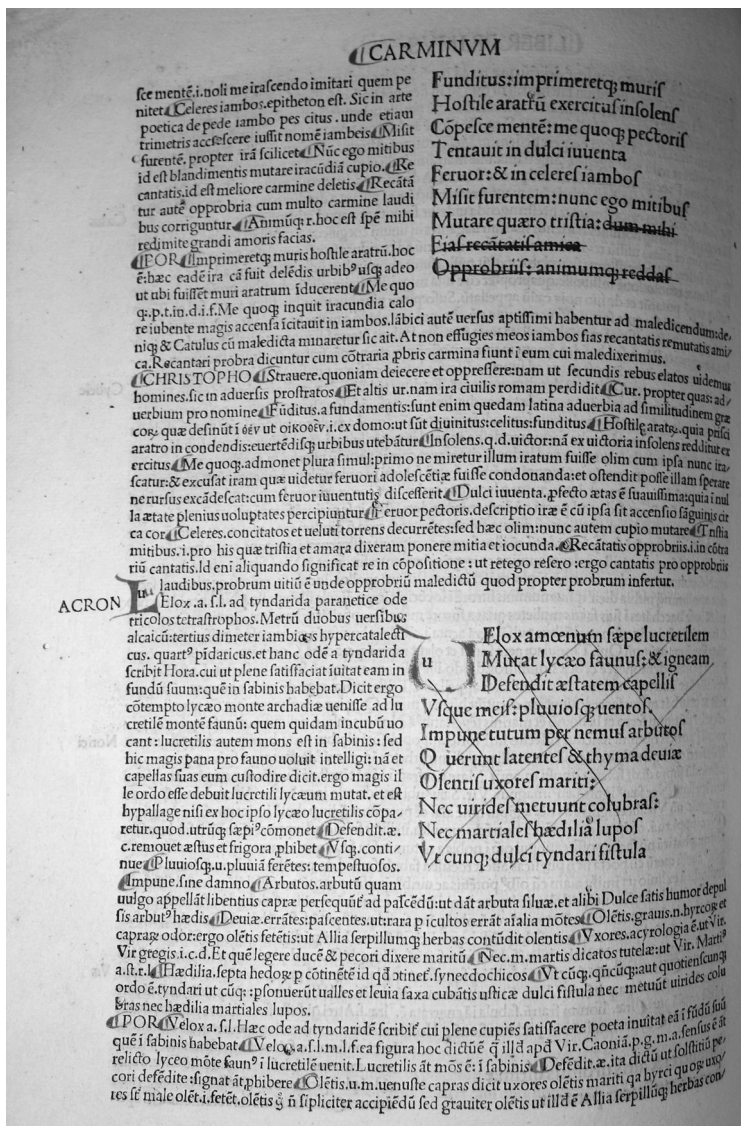 CARMINVM
sce mentē.i.noli me irascendo imitari quem pe
nitet Celeres iambos.epitheton est. Sic in arte
poetica de pede iambo pes citus. unde etiam
trimetris accrescere iussit nomē iambeis Misit
furentē. propter irā scilicet Nūc ego mitibus
id est blandimentis mutare iracūdiā cupio. Re
cantatis.id est meliore carmine deletis Recātā
tur autē opprobria cum multo carmine laudi
bus corriguntur Animūq; r.hoc est spē mihi
redimite grandi amoris facias.
POR Imprimeretq; muris hostile aratrū.hoc
ē:hæc eadē ira cā fuit delēdis urbibꝰ usq; adeo
ut ubi fuissēt muri aratrum īducerent Me quo
q;.p.t.in.d.i.f.Me quoq; inquit iracundia calo
Funditus:imprimeretq; muris
Hostile aratrū exercitus insolens
Cōpesce mentē: me quoq; pectoris
Tentauit in dulci iuuenta
Feruor: & in celeres iambos
Misit furentem: nunc ego mitibus
Mutare quæro tristia: dum mihi
Fias recātatis amica
Opprobriis: animumq; reddas
re iubente magis accensa īcitauit in iambos.Iābici autē uersus aptissimi habentur ad maledicendum:de,
niq; & Catulus cū maledicta minaretur sic ait. At non effugies meos iambos fias recantatis remutatis ami/
ca. Recantari probra dicuntur cum cōtraria ꝓbris carmina fiunt ī eum cui maledixerimus.
CHRISTOPHO Strauere.quoniam deiecere et oppressere:nam ut secundis rebus elatos uidemus
homines.sic in aduersis prostratos Et altis ur.nam ira ciuilis romam perdidit Cur. propter quas: ad/
uerbium pro nomine Fūditus.a fundamentis:sunt enim quedam latina aduerbia ad similitudinem græ
coꝝ. quæ definūt ī όέν ut οικοσέν.i.ex domo:ut sūt diuinitus:celitus:funditus Hostile aratꝝ.quia prisci
aratro in condendis:euertēdisq; urbibus utebātur Insolens.q.d.uictor:nā ex uictoria insolens redditur ex
ercitus Me quoq;.admonet plura simul:primo ne miretur illum iratum fuisse olim cum ipsa nunc ira/
scatur:& excusat iram quæ uidetur feruori adolescētiæ fuisse condonanda:et ostendit posse illam sperare
ne rursus excādescat:cum feruor iuuentutis discesserit Dulci iuuenta.ꝓfecto ætas ē suauissima:quia ī nul
la ætate plenius uoluptates percipiuntur Feruor pectoris.descriptio iræ ē cū ipsa sit accensio sāguinis cir
ca cor Celeres.concitatos et ueluti torrens decurrētes:sed hæc olim:nunc autem cupio mutare Tristia
mitibus.i.pro his quæ tristia et amara dixeram ponere mitia et iocunda. Recātatis opprobriis.i.in cōtra
riū cantatis.Id eni aliquando significat re in cōpositione : ut retego resero :ergo cantatis pro opprobriis
laudibus.probrum uitiū ē unde opprobriū maledictū quod propter probrum infertur.
ACRON
uElox .a.s.l. ad tyndarida paranetice ode
tricolos tetrastrophos. Metrū duobus uersibus
alcaicū:tertius dimeter iambicꝰ hypercatalecti
cus. quartꝰ pīdaricus.et hanc odē a tyndarida
scribit Hora.cui ut plene satisfaciat īuitat eam in
fundū suum:quē in sabinis habebat.Dicit ergo
cōtempto lycæo monte archadiæ uenisse ad lu
cretilē montē faunū: quem quidam incubū uo
cant: lucretilis autem mons est in sabinis : sed
hic magis pana pro fauno uoluit intelligi: nā et
capellas suas eum custodire dicit.ergo magis il
le ordo esse debuit lucretili lycæum mutat. et est
hypallage nisi ex hoc ipso lycæo lucretilis cōpa/
retur.quod.utrūq; sæpiꝰ cōmonet Defendit.æ.
c.remouet æstus et frigora ꝓhibet Vsq;.conti/
nue Pluuiosq;.u.pluuiā ferētes: tempestuosos.
Impune.sine damno Arbutos.arbutū quam
uElox amœnum sæpe lucretilem
Mutat lycæo faunus: & igneam
Defendit æstatem capellis
Vsque meis: pluuiosq; uentos.
Impune tutum per nemus arbutos
Quærunt latentes & thyma deuiæ
Olentis uxores mariti:
Nec uirides metuunt colubras:
Nec martiales hædilia lupos
Vt cunq; dulci tyndari fistula
uulgo appellāt libentius capræ persequūt̄ ad pascēdū:ut dāt arbuta siluæ.et alibi Dulce satis humor depul
sis arbutꝰ hædis Deuiæ.errātes:pascentes.ut:rara p īcultos errāt aīalia mōtes Olētis.grauis.n.hyrcoꝝ et
capraꝝ odor:ergo olētis fetētis:ut Allia serpillumq; herbas contūdit olentis Vxores.acyrologia ē.ut Vir.
Vir gregis i.c.d.Et quē legere ducē & pecori dixere maritū Nec.m.martis dicatos tutelæ:ut Vir. Martiꝰ
a.st.r. Hædilia.septa hedoꝝ p cōtinētē id qd ↄtinet̄.synecdochicos Vt cūq;.qñcūq;:aut quotienscunq;
ordo ē.tyndari ut cūq; :psonuerūt ualles et leuia saxa cubātis usticæ dulci fistula nec metuūt uirides colu
bras nec hædilia martiales lupos.
POR Velox a.s.l.Hæc ode ad tyndaridē scribit̄ cui plene cupiēs satisfacere poeta inuitat eā ī fūdū suū
quē ī sabinis habebat Velox.a.s.l.m.l.f.ea figura hoc dictūē q̄ illd apd Vir. Caoniā.p.g.m.a.sensus ē āt
relicto lyceo mōte faunꝰ ī lucretilē uenit.Lucretilis āt mōs ē: ī sabinis Defēdit.æ.ita dictū ut solstitiū pe/
cori defēdite :signat āt,phibere Olētis.u.m.uenuste capras dicit uxores olētis mariti qa hyrci quoq; uxo/
res st̄ male olēt.i.fetēt.olētis g̊ ñ sīpliciter accipiēdū sed grauiter olētis ut illd ē Allia serpillūq; herbas con/